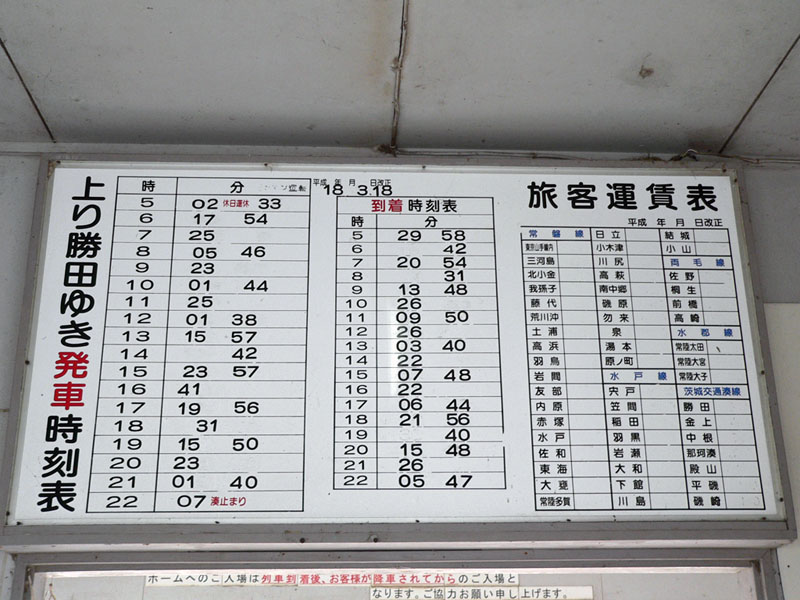 上り勝田ゆき発車時刻表
時 分
5 02 休日運休 33
6 17 54
7 25
8 05 46
9 23
10 01 44
11 25
12 01 38
13 15 57
14 42
15 23 57
16 41
17 19 56
18 31
19 15 50
20 23
21 01 40
22 07 湊止まり
平成 年 月 日改正
18 3.18
到着時刻表
時 分
5 29 58
6 42
7 20 54
8 31
9 13 48
10 26
11 09 50
12 26
13 03 40
14 22
15 07 48
16 22
17 06 44
18 21 56
19 40
20 15 48
21 26
22 05 47
旅客運賃表
平成 年 月 日改正
常磐線
東京山手線内
三河島
北小金
我孫子
藤代
荒川沖
土浦
高浜
羽鳥
岩間
友部
内原
赤塚
水戸
佐和
東海
大甕
常陸多賀
日立
小木津
川尻
高萩
南中郷
磯原
勿来
泉
湯本
原ノ町
水戸線
宍戸
笠間
稲田
羽黒
岩瀬
大和
下館
川島
結城
小山
両毛線
佐野
桐生
前橋
高崎
水郡線
常陸太田
常陸大宮
常陸大子
茨城交通湊線
勝田
金上
中根
那珂湊
殿山
平磯
磯崎
ホームへのご入場は列車到着後、お客様が降車されてからのご入場と
なります。ご協力お願い申し上げます。